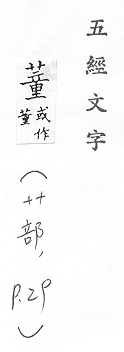 五經文字
蕫 或作董
(艹部, P.29)